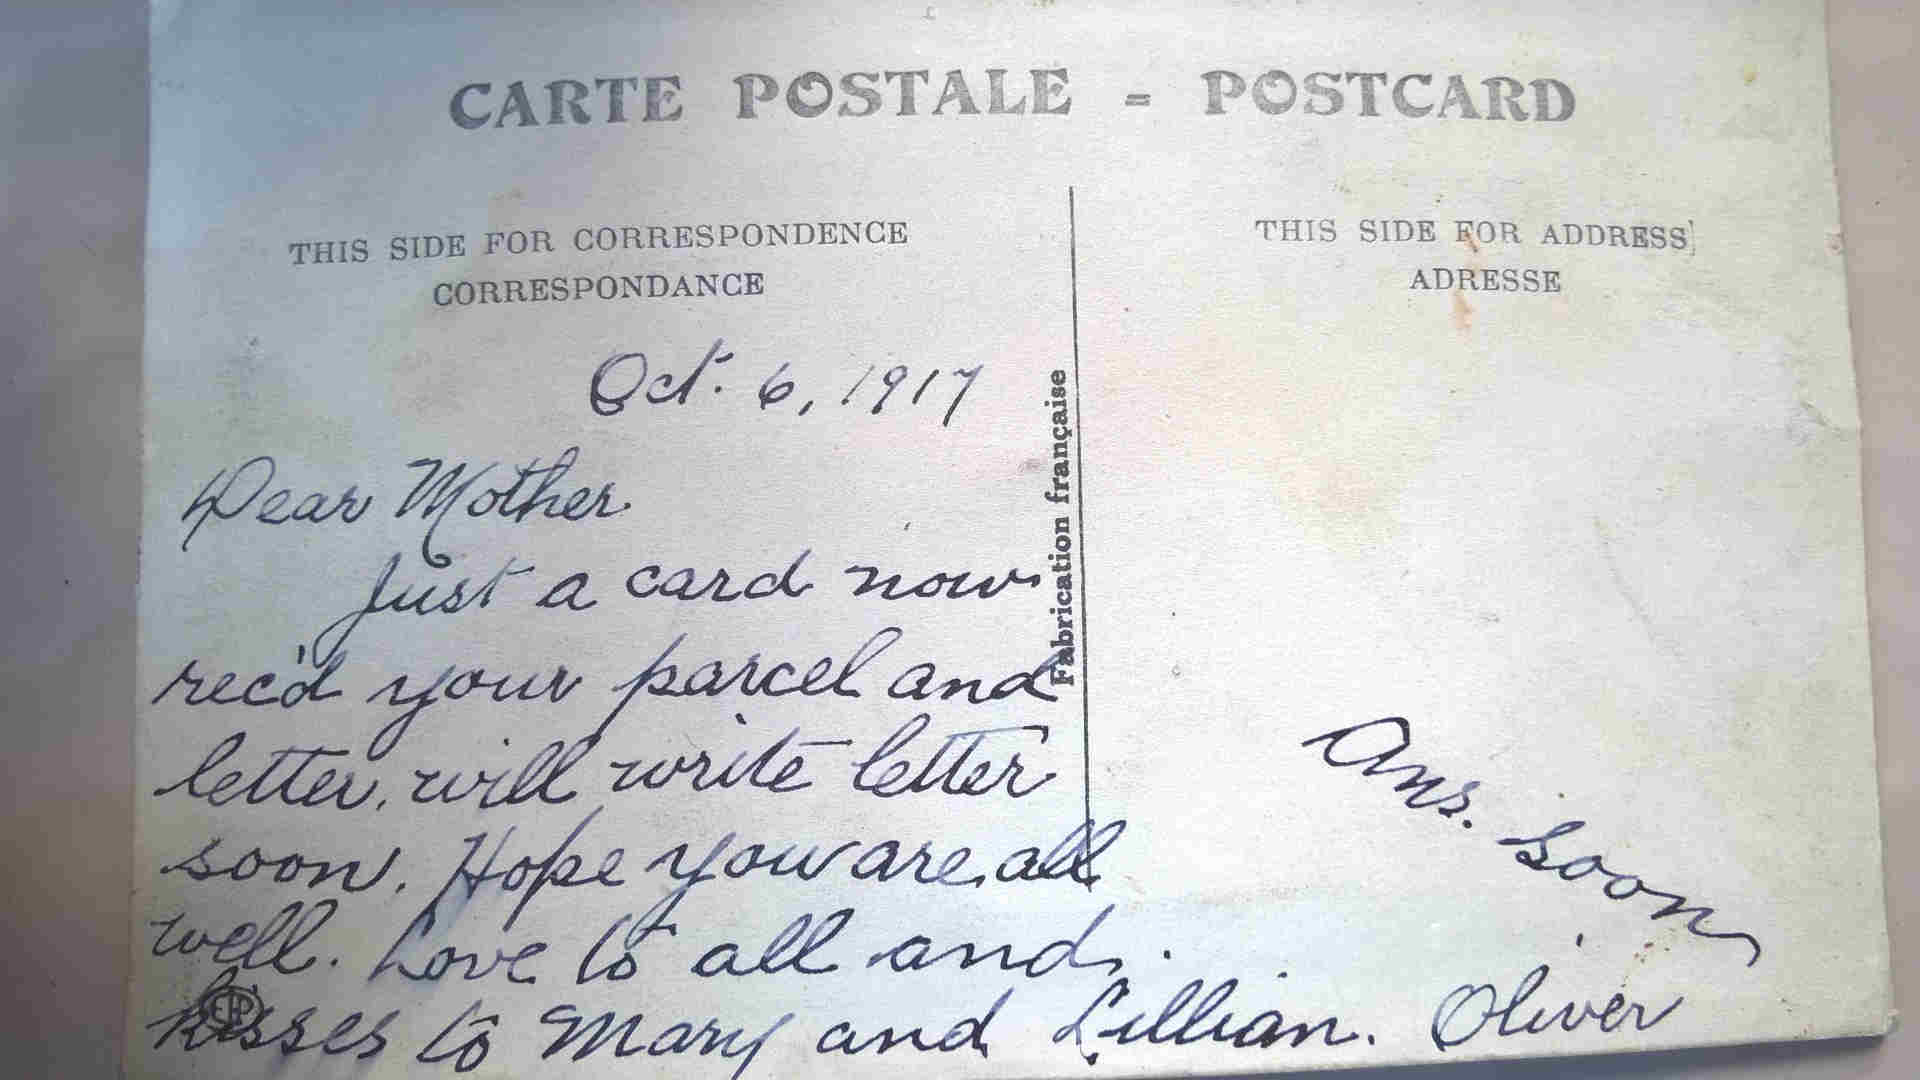 CARTE POSTALE = POSTCARD
THIS SIDE FOR CORRESPONDENCE
CORRESPONDANCE
Oct. 6, 1917
Dear Mother
Just a card now
rec'd your parcel and
letter, will write letter
soon. Hope you are all
well. Love to all and
kisses to Mary and Lillian. Oliver
Fabrication française
THIS SIDE FOR ADDRESS
ADRESSE
Ans. soon